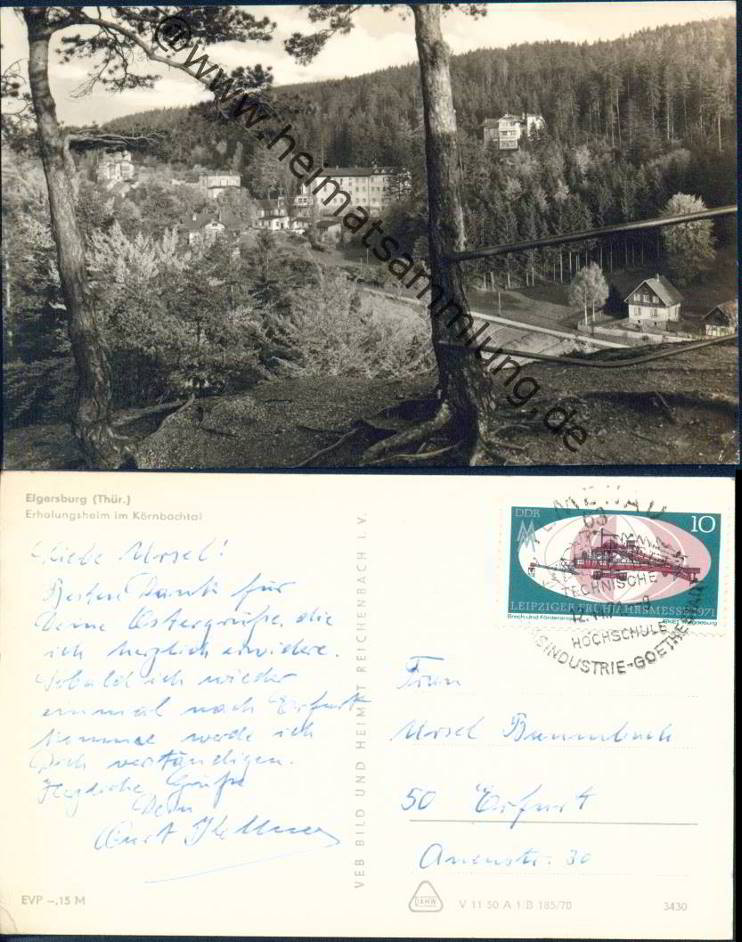 ©www.heimatsammlung.de
Elgersburg (Thür.)
Erholungsheim im Körnbachtal
Liebe Ursel!
Besten Dank für
Deine Ostergrüße, die
ich herzlich erwidere.
Sobald ich wieder
einmal nach Erfurt
komme werde ich
Dich verständigen.
Herzliche Grüße
Dein
Kurt
EVP -,15 M
VEB BILD UND HEIMAT REICHENBACH I. V.
DDR
10
LEIPZIGER FRÜHJAHRSMESSE 1971
ILMENAU
63
TECHNISCHE
HOCHSCHULE
Frau
Ursel
50 Erfurt
30
V 11 50 A 1 B 185/70
3430